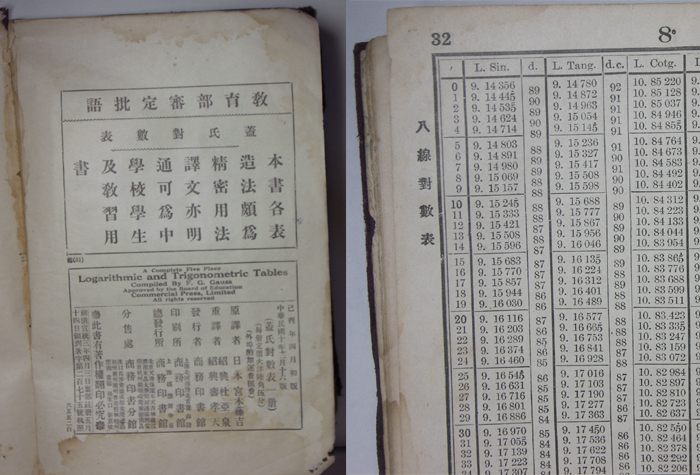 教育部審定批語
蓋氏對數表
本書各表
造法頗爲
精密用法
譯文亦明
通可爲中
學校學生
及教習用
書
A Complete Five Place
Logarithmic and Trigonometric Tables
Compiled By F. G. Gauss
Approved by the Board of Education
Commercial Press, Limited
All rights reserved
己酉年四月初版
中華民國十年
(蓋氏對數表一冊)
(外埠酌加運費匯費)
原譯者 日本宮本藤吉
重譯者 紹興杜亞泉 紹興壽孝天
發行者 商務印書館
印刷所 商務印書館
總發行所 商務印書館
分售處 商務印書分館
此書有著作權翻印必究
32 8°
八線對數表
′ L. Sin. d. L. Tang. d.c. L. Cotg.
0 9. 14 356 89 9. 14 780 92 10. 85 220
1 9. 14 445 90 9. 14 872 91 10. 85 128
2 9. 14 535 89 9. 14 963 91 10. 85 037
3 9. 14 624 90 9. 15 054 91 10. 84 946
4 9. 14 714 89 9. 15 145 91 10. 84 855
5 9. 14 803 88 9. 15 236 91 10. 84 764
6 9. 14 891 89 9. 15 327 90 10. 84 673
7 9. 14 980 89 9. 15 417 91 10. 84 583
8 9. 15 069 88 9. 15 508 90 10. 84 492
9 9. 15 157 88 9. 15 598 90 10. 84 402
10 9. 15 245 88 9. 15 688 89 10. 84 312
11 9. 15 333 88 9. 15 777 90 10. 84 223
12 9. 15 421 87 9. 15 867 89 10. 84 133
13 9. 15 508 88 9. 15 956 90 10. 84 044
14 9. 15 596 87 9. 16 046 89 10. 83 954
15 9. 15 683 87 9. 16 135 89 10. 83 865
16 9. 15 770 87 9. 16 224 88 10. 83 776
17 9. 15 857 87 9. 16 312 89 10. 83 688
18 9. 15 944 86 9. 16 401 88 10. 83 599
19 9. 16 030 86 9. 16 489 88 10. 83 511
20 9. 16 116 87 9. 16 577 88 10. 83 423
21 9. 16 203 86 9. 16 665 88 10. 83 335
22 9. 16 289 85 9. 16 753 88 10. 83 247
23 9. 16 374 86 9. 16 841 87 10. 83 159
24 9. 16 460 85 9. 16 928 88 10. 83 072
25 9. 16 545 86 9. 17 016 87 10. 82 984
26 9. 16 631 85 9. 17 103 87 10. 82 897
27 9. 16 716 85 9. 17 190 87 10. 82 810
28 9. 16 801 85 9. 17 277 86 10. 82 723
29 9. 16 886 84 9. 17 363 87 10. 82 637
30 9. 16 970 85 9. 17 450 86 10. 82 550
31 9. 17 055 84 9. 17 536 86 10. 82 464
32 9. 17 139 84 9. 17 622 86 10. 82 378
33 9. 17 223 84 9. 17 708 86 10. 82 292
9. 17 307 9. 17 794